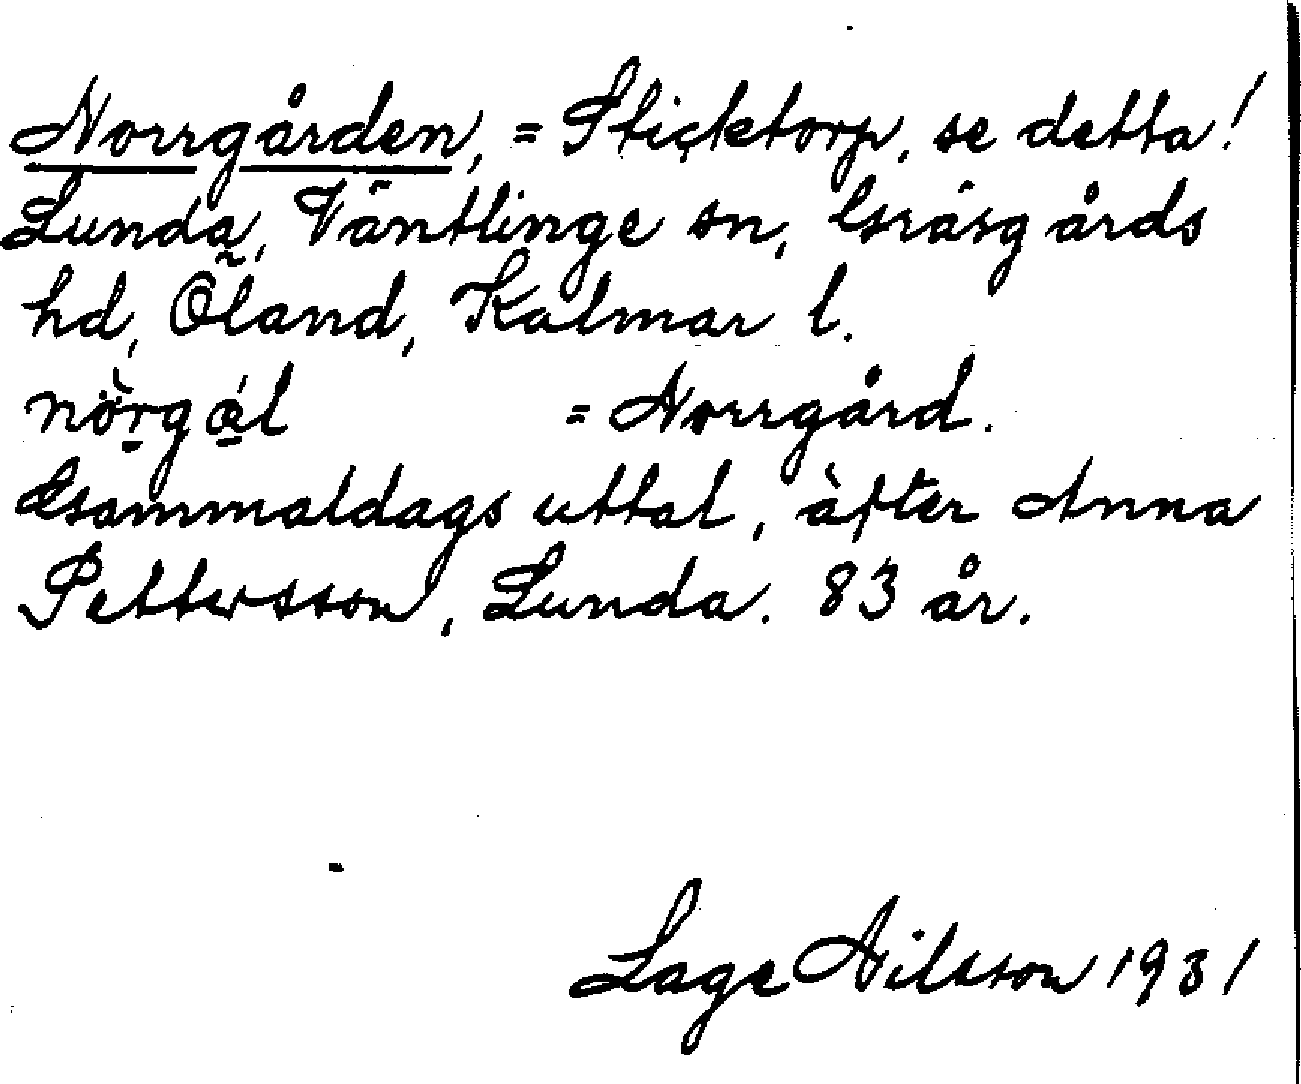 Norrgården, = Sticktorp, se detta!
Lunda, Väntlinge sn, Gräsgårds
hd, Öland, Kalmar l.
nö̀rgál = Norrgård.
Gammaldags uttal, äfter Anna
Pettersson, Lunda. 83 år.
Lage Nilsson 1931